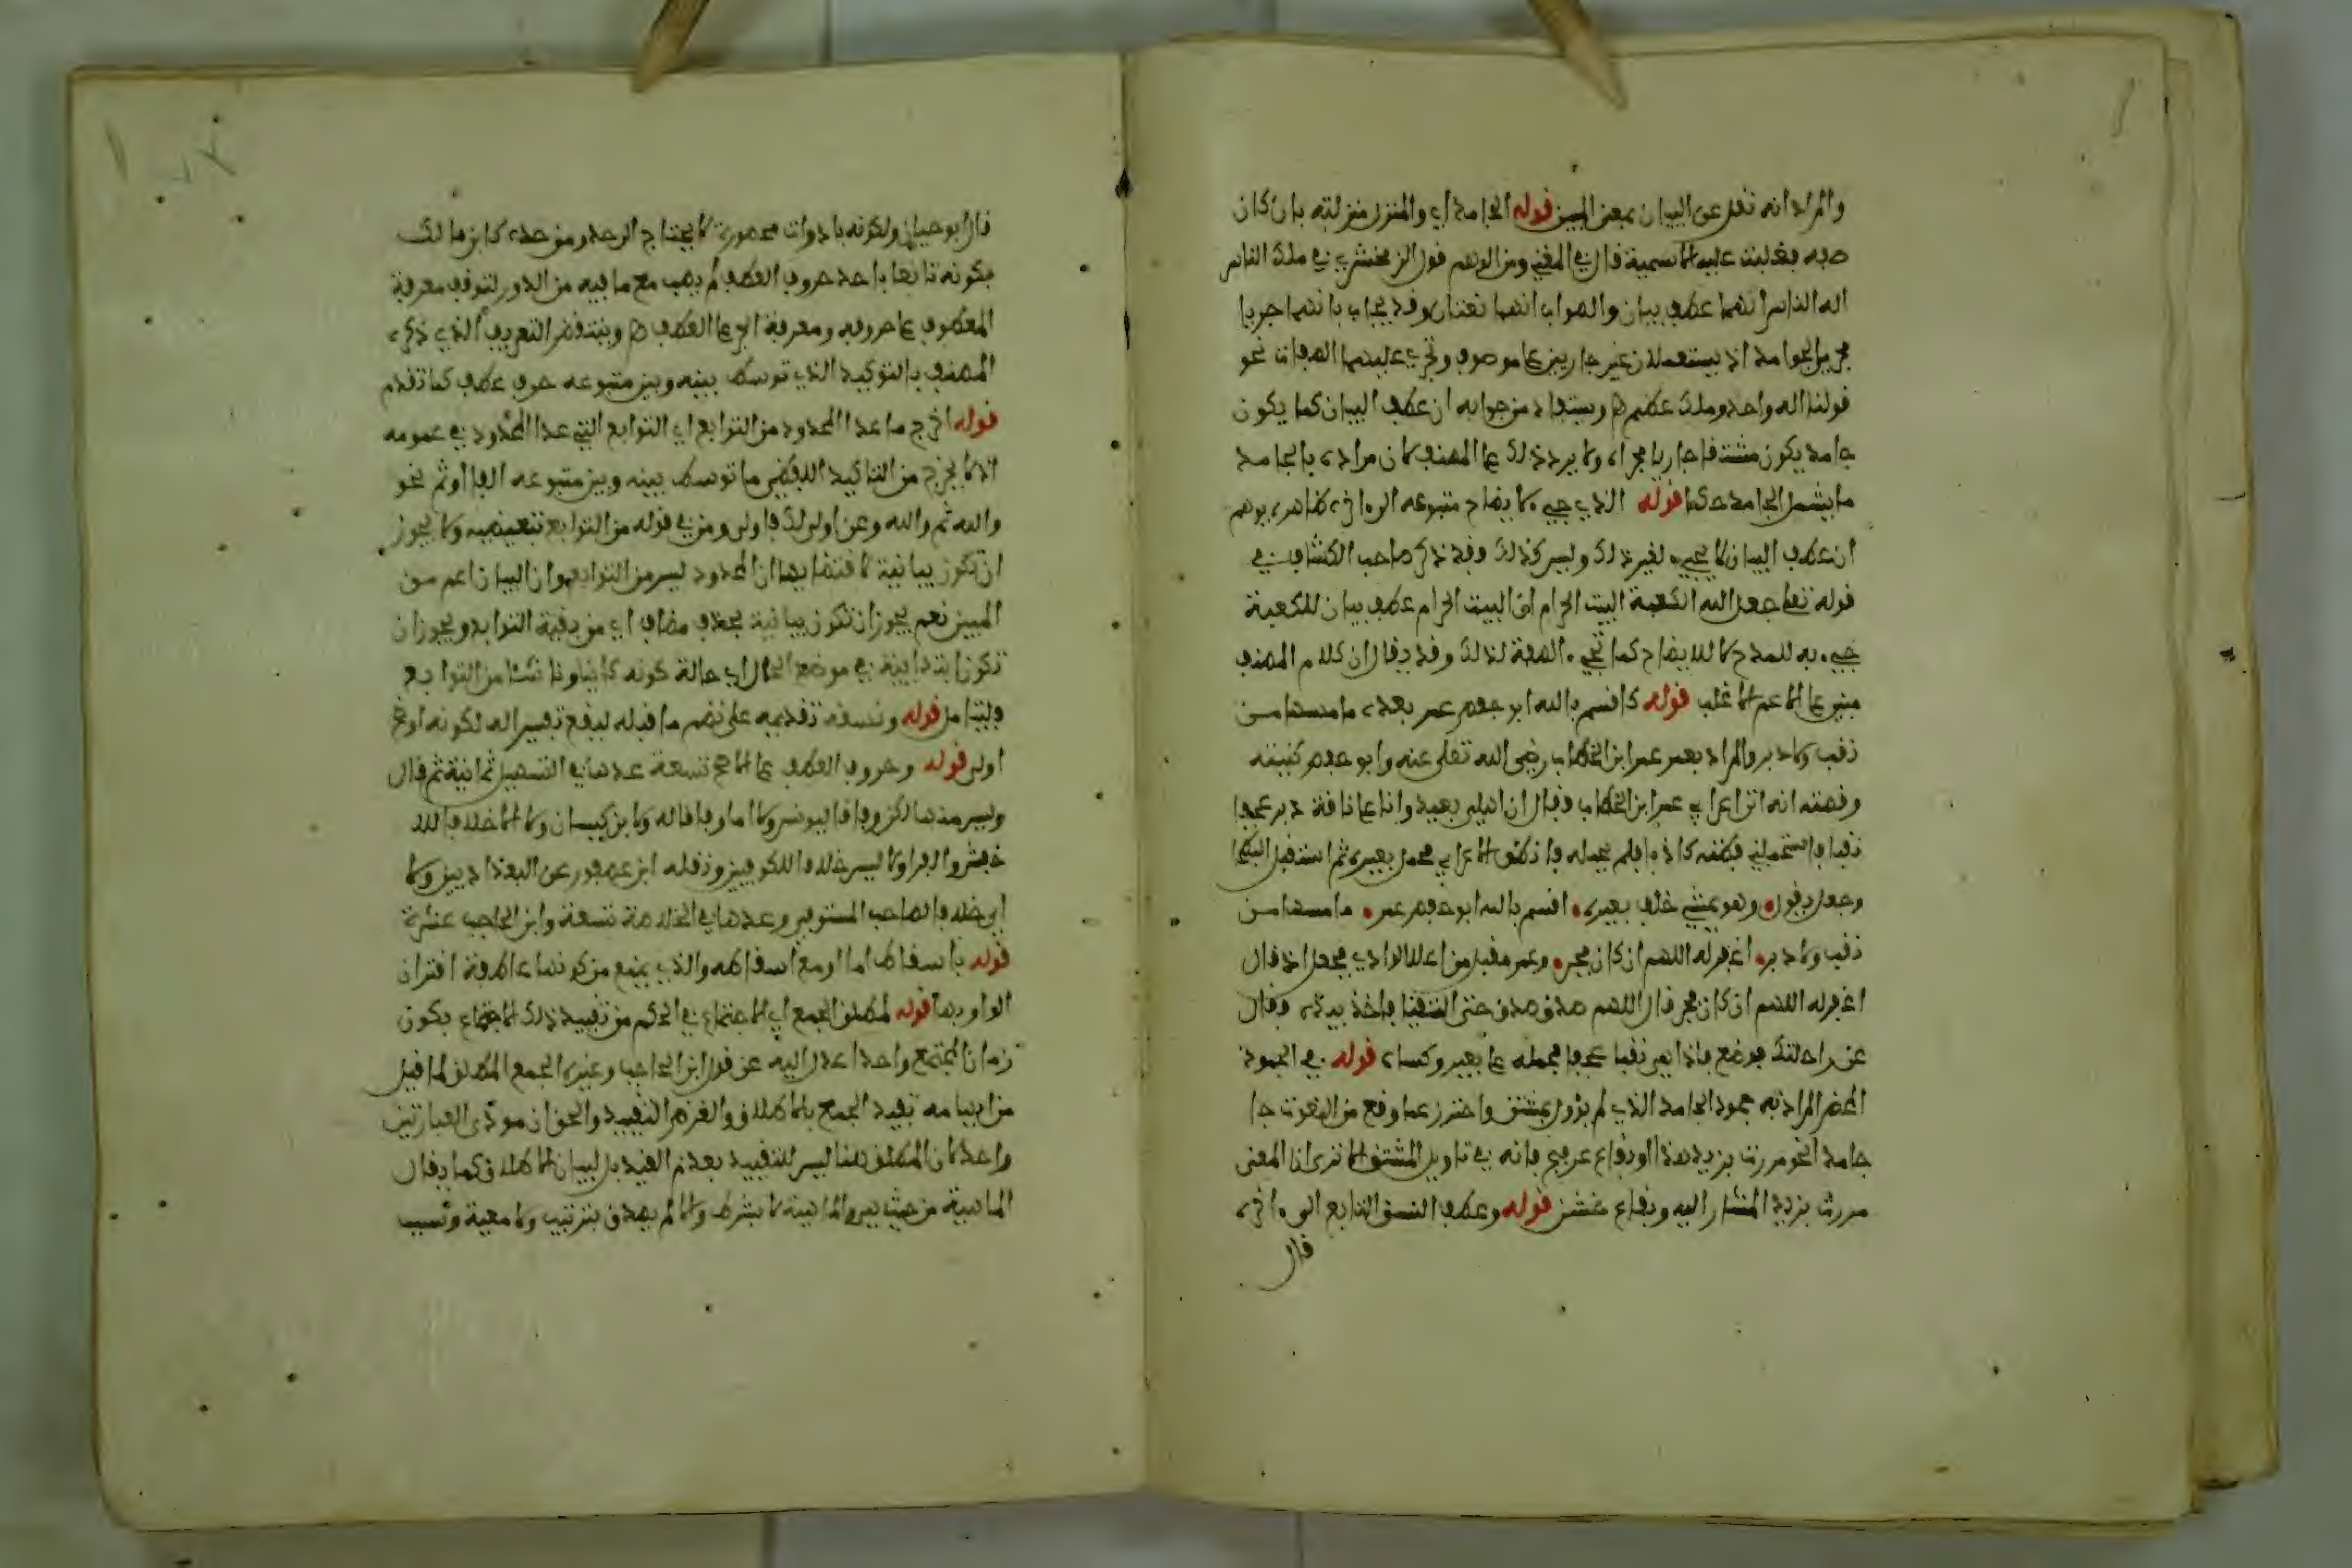 والمراد انه نقل عن البيان بمعنى المبين قوله الجامد اي والمنزل منزلته بان كان
صفة فغلبت عليه الاسمية قال في المغني ومن الوهم قول الزمخشري في ملك الناس
اله الناس انهما عطف بيان والصواب انهما نعتان وقد يجاب بانهما اجريا
مجرى الجوامد اذ يستعملان غير جاريين على موصوف وتجري عليهما الصفات نحو
قولنا اله واحد وملك عظيم ه ويستفاد من جوابه ان عطف البيان كما يكون
جامدا يكون مشتقا جاريا مجراه ولا يرد ذلك على المصنف لان مراده بالجامد
ما يشمل الجامد حكما قوله الذي جيء لايضاح متبوعه الى اخره ظاهره يوهم
ان عطف البيان لا يجيء لغير ذلك وليس كذلك وقد ذكر صاحب الكشاف في
قوله تعلى جعل الله الكعبة البيت الحرام ان البيت الحرام عطف بيان للكعبة
جيء به للمدح لا للايضاح كما تجيء الصفة لذلك وقد يقال ان كلام المصنف
مبني على الاعم الاغلب قوله كاقسم بالله ابو حفص عمر بعده ما مسها من
نقب ولا دبر والمراد بعمر عمر ابن الخطاب رضي الله تعلى عنه وابو حفص كنيته
وقصته انه اتى اعرابي عمر ابن الخطاب فقال ان اهلي بعيد وانا على ناقة دبر عجفا
نقبا فاستحملني فظنه كاذبا فلم يحمله فانطلق الاعرابي فحمل بعيره ثم استقبل البطحا
وجعل يقول وهو يمشي خلف بعيره اقسم بالله ابو حفص عمر ما مسها من
نقب ولا دبر اغفر له اللهم ان كان فجر وعمر مقبل من اعلا الوادي فجعل اذا قال
اغفر له اللهم ان كان فجر قال اللهم صدق صدق حتى التقيا فاخذ بيده وقال
عن راحلتك فوضع فاذا هي نقبا عجفا فحمله على بعير وكساه قوله في الجمود
المحض المراد به جمود الجامد الذي لم يؤول بمشتق واحترز عما وقع من النعوت جا
جامدا نحو مررت بزيد هذا او بقاع عرفج فانه في تاويل المشتق الا ترى ان المعنى
مررت بزيد المشار اليه وبقاع خشن قوله وعطف النسق التابع الى اخره
قال
قال ابو حيان ولكونه بادوات محصورة لا يحتاج الى حد ومن حده كابن مالك
بكونه تابعا باحد حروف العطف لم يصب مع ما فيه من الدور لتوقف معرفة
المعطوف على حروفه ومعرفة الحرف على العطف ه وينتقض التعريف الذي ذكره
المصنف بالتوكيد الذي توسط بينه وبين متبوعه حرف عطف كما تقدم
قوله اخرج ما عدا المحدود من التوابع اي التوابع التي عدا المحدود في عمومه
اذ لا يخرج من التاكيد اللفظي ما توسط بينه وبين متبوعه الفا او ثم نحو
والله ثم والله وعن اولى لك فاولى ومن في قوله من التوابع تبعيضية ولا يجوز
ان تكون بيانية لاقتضائها ان المحدود ليس من التوابع وان البيان اعم من
المبين نعم يجوز ان تكون بيانية بحذف مضاف اي من بقية التوابع ويجوز ان
تكون ابتدائية في موضع الحال اي حالة كونه كائنا وناشئا من التوابع
وليتامل قوله ونسقه تقديمه على نظم ما قبله ليقع تفسيرا له لكونه اوضح
اولى قوله وحروف العطف على الاصح تسعة عدها في التسهيل ثمانية ثم قال
وليس منها لكن وفاقا ليونس ولا اما وفاقا له ولابن كيسان ولا الا خلافا للا
خفش والفرا ولا ليس خلافا للكوفيين ونقله ابن عصفور عن البغداديين ولا
اي خلافا لصاحب المستوفي وعدها في الخلاصة تسعة وابن الحاجب عشرة
قوله باسقاط اما اومع اسقاطه والذي يمنع من كونها عاطفة اقتران
الواو بها قوله لمطلق الجمع اي الاجتماع في الحكم من تقييد ذلك الاجتماع بكون
زمان المجتمع واحدا عدل اليه عن قول ابن الحاجب وغيره الجمع المطلق لما قيل
من ايهامه تقييد الجمع بالاطلاق والغرض التقييد والحق ان مودى العبارتين
واحد لان المطلق هنا ليس للتقييد بعدم القيد بل لبيان الاطلاق كما يقال
الماهية من حيث هي والماهية لا بشرط والا لم يصدق بترتيب ولا معية وسبب